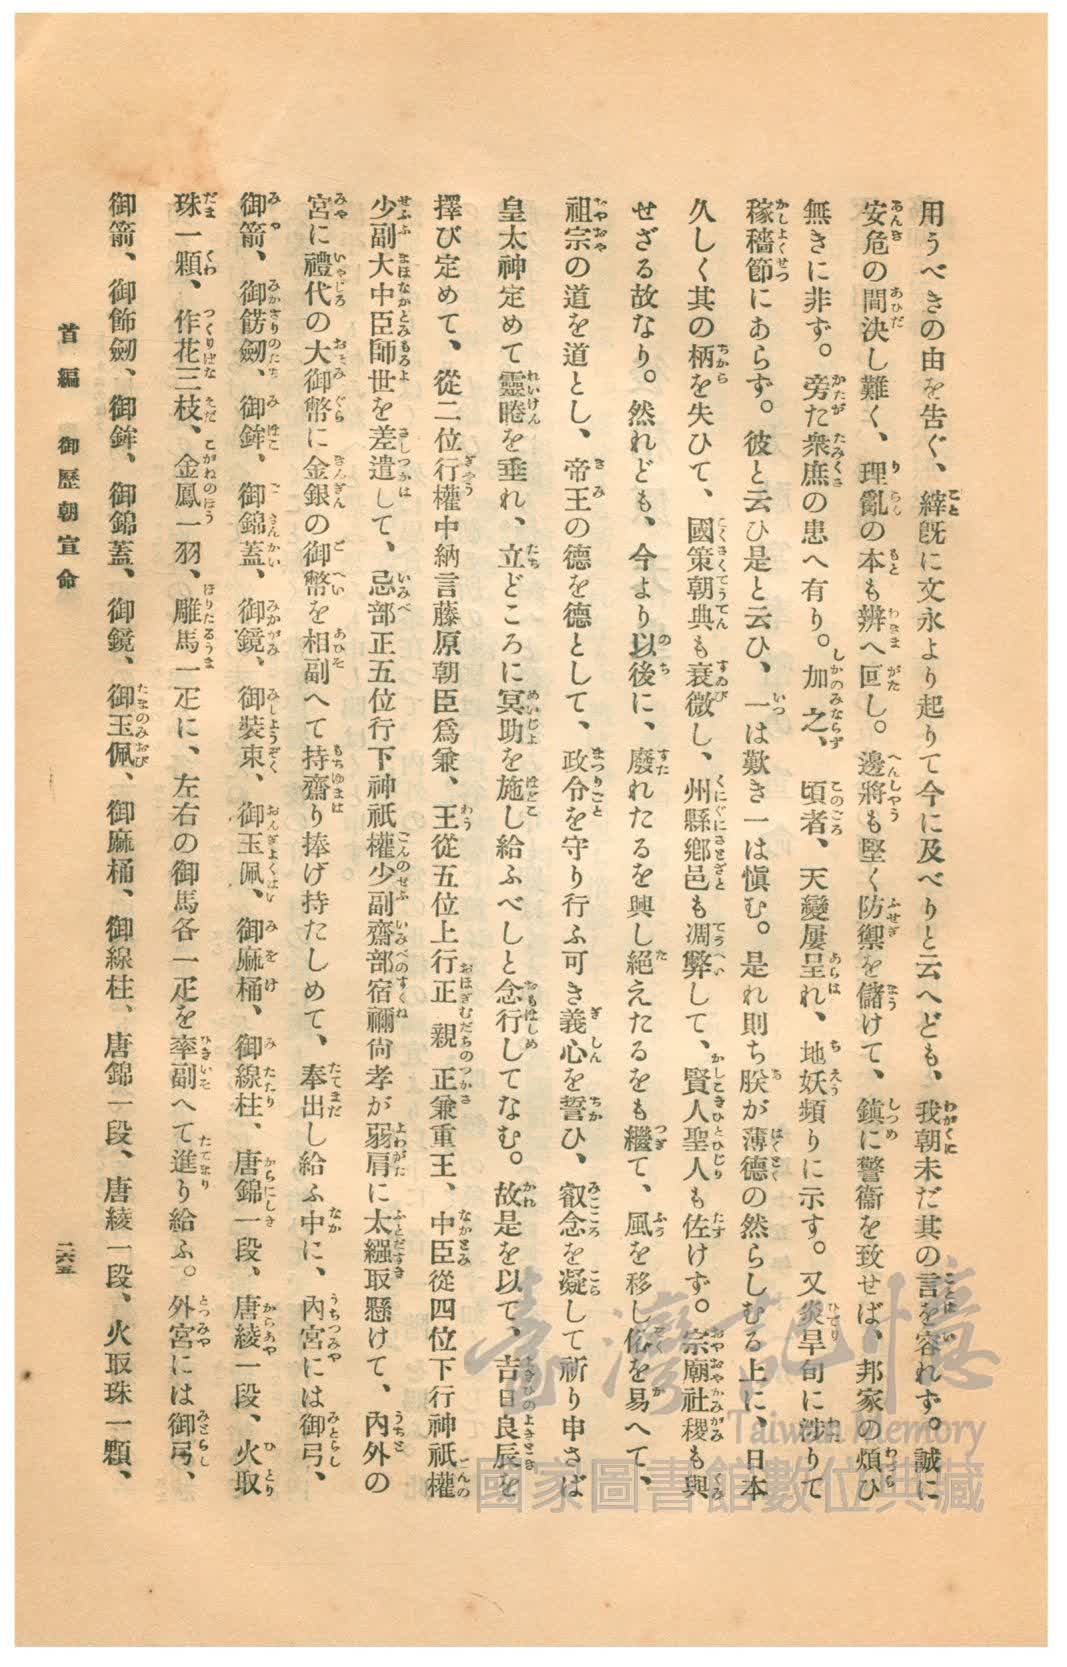 用うべきの由を告ぐ、縡旣に文永より起りて今に及べりと云へども、我朝未だ其の言を容れず。誠に
安危の間決し難く、理亂の本も辨へ叵し。邊將も堅く防禦を儲けて、鎭に警衞を致せば、邦家の煩ひ
無きに非ず。旁た衆庶の患へ有り。加之、頃者、天變屢呈れ、地妖頻りに示す。又炎旱旬に涉りて
稼穡節にあらず。彼と云ひ是と云ひ、一は歎き一は愼む。是れ則ち朕が薄德の然らしむる上に、日本
久しく其の柄を失ひて、國策朝典も衰微し、州縣鄕邑も凋弊して、賢人聖人も佐けず。宗廟社稷も與
せざる故なり。然れども、今より以後に、廢れたるを興し絕えたるをも繼て、風を移し俗を易へて、
祖宗の道を道とし、帝王の德を德として、政令を守り行ふ可き義心を誓ひ、叡念を凝して祈り申さば
皇太神定めて靈睠を垂れ、立どころに冥助を施し給ふべしと念行してなむ。故是を以て、吉日良辰を
擇び定めて、從二位行權中納言藤原朝臣爲兼、王從五位上行正親正兼重王、中臣從四位下行神祇權
少副大中臣師世を差遣して、忌部正五位行下神祇權少副齋部宿禰尙孝が弱肩に太繦取懸けて、內外の
宮に禮代の大御幣に金銀の御幣を相副へて持齋り捧げ持たしめて、奉出し給ふ中に、內宮には御弓、
御箭、御餝劒、御鉾、御錦蓋、御鏡、御裝束、御玉佩、御麻桶、御線柱、唐錦一段、唐綾一段、火取
珠一顆、作花三枝、金鳳一羽、雕馬一疋に、左右の御馬各一疋を率副へて進り給ふ。外宮には御弓、
御箭、御飾劒、御鉾、御錦蓋、御鏡、御玉佩、御麻桶、御線柱、唐錦一段、唐綾一段、火取珠一顆、
首編 御歷朝宣命
二六五
臺灣記憶
Taiwan Memory
國家圖書館數位典藏